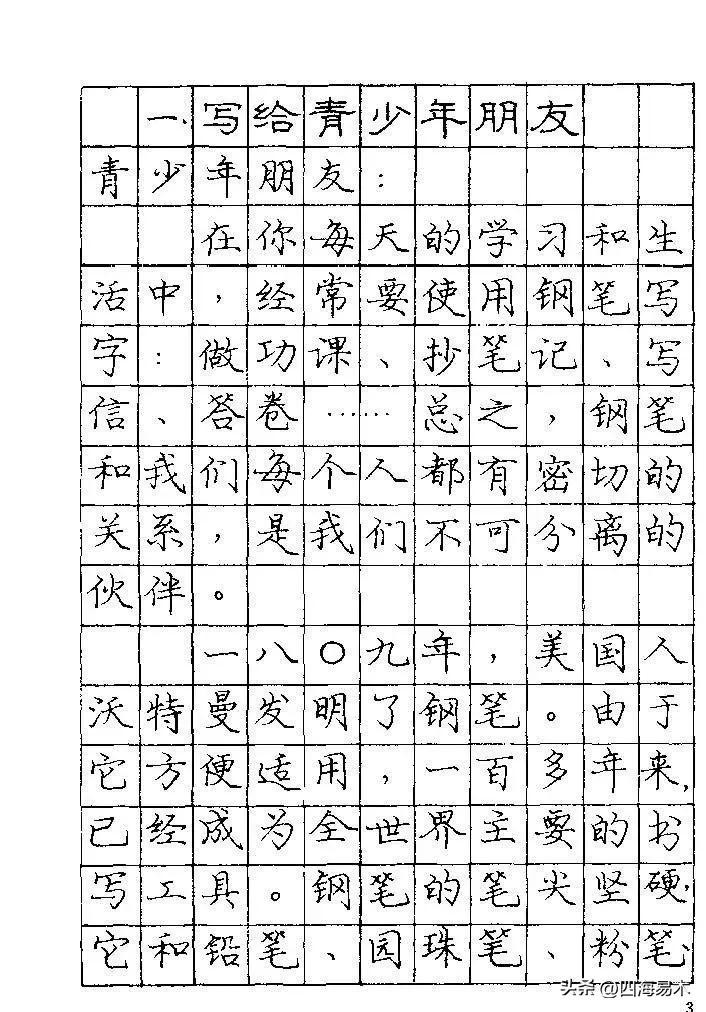 一、写给青少年朋友
青少年朋友：
在你每天的学习和生
活中，经常要使用钢笔写
字：做功课、抄笔记、写
信、答卷……总之，钢笔
和我们每个人都有密切的
关系，是我们不可分离的
伙伴。
一八〇九年，美国人
沃特曼发明了钢笔。由于
它方便适用，一百多年来，
已经成为全世界主要的书
写工具。钢笔的笔尖坚硬，
它和铅笔、园珠笔、粉笔、
头条@四海易木
3